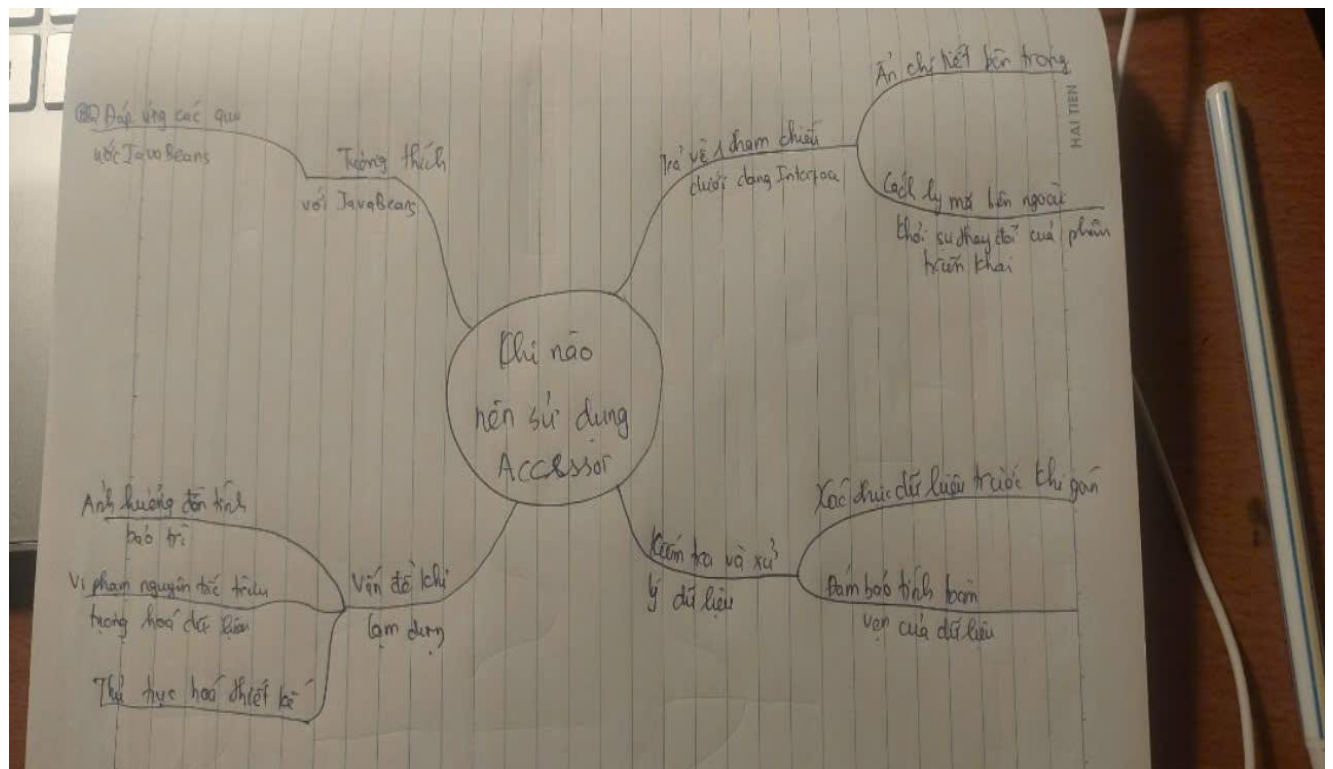 Khi nào
nên sử dụng
Accessor
Tương thích
với JavaBeans
Đáp ứng các quy
ước JavaBeans
Trả về 1 tham chiếu
dưới dạng Interface
Ẩn chi tiết bên trong
Cách ly mã bên ngoài
khỏi sự thay đổi của phần
triển khai
HẢI TIẾN
Kiểm tra và xử
lý dữ liệu
Xác thực dữ liệu trước khi gán
Đảm bảo tính toàn
vẹn của dữ liệu
Vấn đề khi
lạm dụng
Ảnh hưởng đến tính
bảo trì
Vi phạm nguyên tắc trừu
tượng hoá dữ liệu
Thủ tục hoá thiết kế